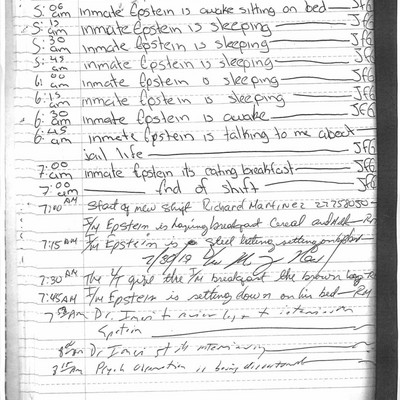 5:06 am inmate Epstein is awake sitting on bed JFG
5:15 am inmate Epstein is sleeping JFG
5:30 am inmate Epstein is sleeping JFG
5:45 am inmate Epstein is sleeping JFG
6:00 am inmate Epstein is sleeping JFG
6:15 am inmate Epstein is sleeping JFG
6:30 am inmate Epstein is awake JFG
6:45 am inmate Epstein is talking to me about
jail life JFG
7:00 am inmate Epstein its eating breakfast JFG
7:00 am End of shift JFG
7:00 AM Start of new shift Richard Martinez
I/M Epstein is having breakfast Cereal and
7:15 AM I/M Epstein is still setting on
7/30/19
7:30 AM The give the I/M breakfast the brown bag
7:45 AM I/M Epstein is setting down on his bed RM
Dr. to
Epstein
am Dr. interviewing
am Psych is being